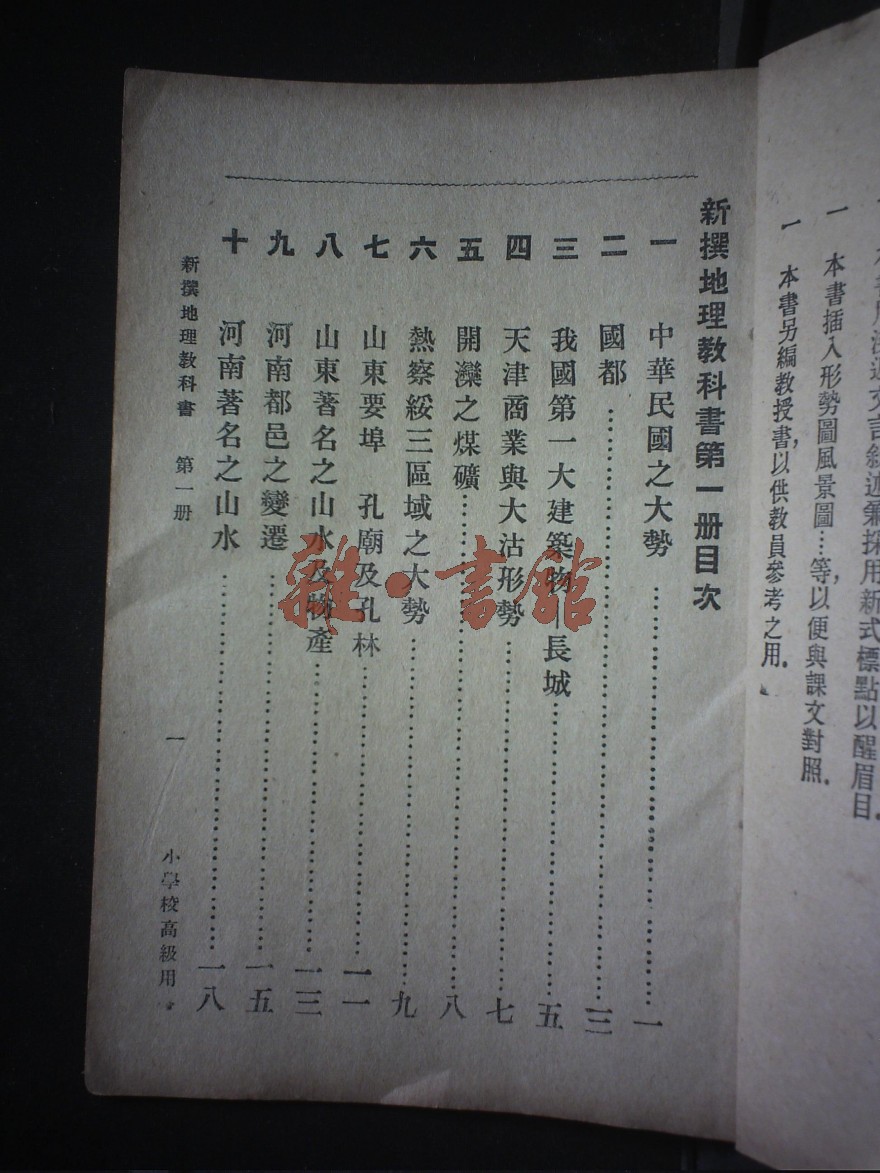 本書插入形勢圖風景圖…等,以便與課文對照.
一 本書另編教授書,以供教員參考之用.
新撰地理教科書第一册目次
一 中華民國之大勢……一
二 國都……三
三 我國第一大建築物—長城……五
四 天津商業與大沽形勢……七
五 開灤之煤礦……八
六 熱察綏三區域之大勢……九
七 山東要埠 孔廟及孔林……一一
八 山東著名之山水及物產……一三
九 河南都邑之變遷……一五
十 河南著名之山水……一八
新撰地理教科書 第一册 一 小學校高級用
雜·書館